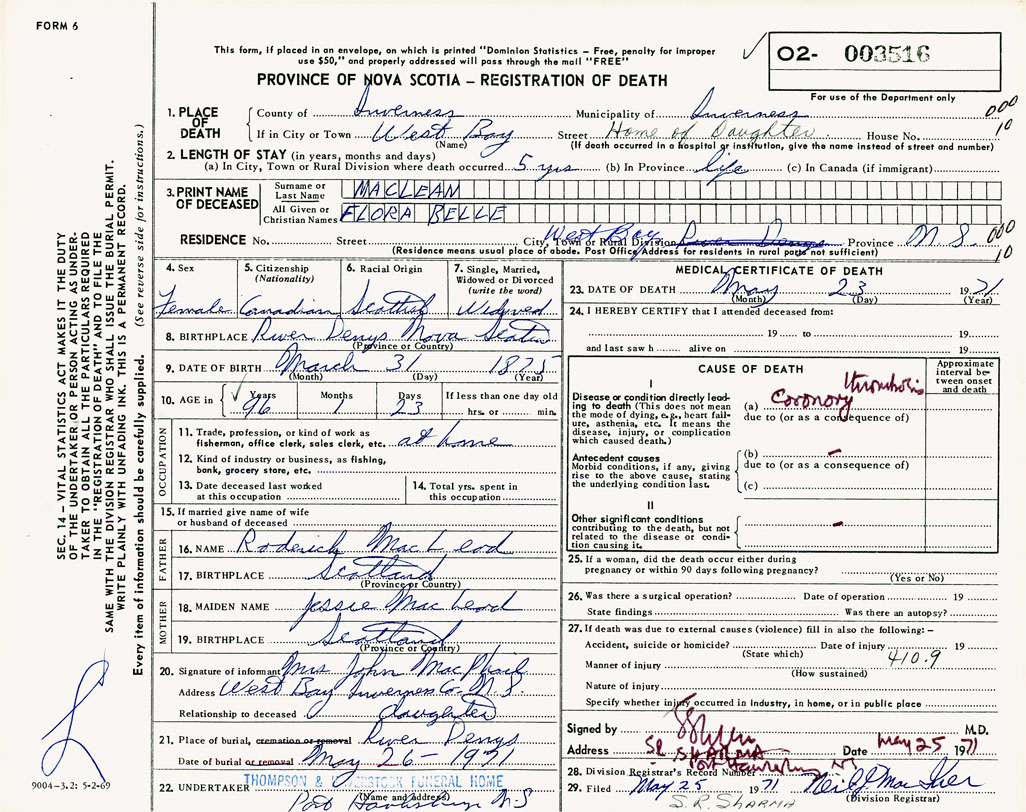 FORM 6
This form, if placed in an envelope, on which is printed "Dominion Statistics – Free, penalty for improper
use $50," and properly addressed will pass through the mail "FREE"
PROVINCE OF NOVA SCOTIA – REGISTRATION OF DEATH
02- 003516
For use of the Department only
1. PLACE OF DEATH
County of Inverness Municipality of Inverness 000
If in City or Town West Bay Street Home of Daughter House No. 10
(Name) (If death occurred in a hospital or institution, give the name instead of street and number)
2. LENGTH OF STAY (in years, months and days)
(a) In City, Town or Rural Division where death occurred 5 yrs (b) In Province life (c) In Canada (if immigrant)
3. PRINT NAME OF DECEASED
Surname or Last Name MACLEAN
All Given or Christian Names FLORA BELLE
RESIDENCE No. Street City, Town or Rural Division West Bay River Denys Province N S. 000
(Residence means usual place of abode. Post Office Address for residents in rural page not sufficient) 10
4. Sex
Female
5. Citizenship
(Nationality)
Canadian
6. Racial Origin
Scottish
7. Single, Married,
Widowed or Divorced
(write the word)
Widowed
8. BIRTHPLACE River Denys Nova Scotia
(Province or Country)
9. DATE OF BIRTH March 31 1875
(Month) (Day) (Year)
10. AGE in
Years 96
Months 1
Days 23
If less than one day old
hrs. or min.
OCCUPATION
11. Trade, profession, or kind of work as
fisherman, office clerk, sales clerk, etc. at home
12. Kind of industry or business, as fishing,
bank, grocery store, etc.
13. Date deceased last worked
at this occupation
14. Total yrs. spent in
this occupation
15. If married give name of wife
or husband of deceased
FATHER
16. NAME Roderick MacLeod
17. BIRTHPLACE Scotland
(Province or Country)
MOTHER
18. MAIDEN NAME Jessie MacLeod
19. BIRTHPLACE Scotland
(Province or Country)
20. Signature of informant Mrs John MacPhail
Address West Bay Inverness Co. N.S.
Relationship to deceased daughter
21. Place of burial, cremation or removal River Denys
Date of burial or removal May 26 – 1971
22. UNDERTAKER THOMPSON & FUNERAL HOME
(Name and address)
Port Hawkesbury N-S
MEDICAL CERTIFICATE OF DEATH
23. DATE OF DEATH May 23 1971
(Month) (Day) (Year)
24. I HEREBY CERTIFY that I attended deceased from:
19 to 19
and last saw h alive on 19
CAUSE OF DEATH
Approximate
interval be-
tween onset
and death
I
Disease or condition directly lead-
ing to death (This does not mean
the mode of dying, e.g., heart fail-
ure, asthenia, etc. It means the
disease, injury, or complication
which caused death.)
(a) Coronary thrombosis
due to (or as a consequence of)
Antecedent causes
Morbid conditions, if any, giving
rise to the above cause, stating
the underlying condition last.
(b) –
due to (or as a consequence of)
(c)
II
Other significant conditions
contributing to the death, but not
related to the disease or condi-
tion causing it.
–
25. If a woman, did the death occur either during
pregnancy or within 90 days following pregnancy?
(Yes or No)
26. Was there a surgical operation? Date of operation 19
State findings Was there an autopsy?
27. If death was due to external causes (violence) fill in also the following: –
Accident, suicide or homicide? Date of injury 19
(State which)
410.9
Manner of injury
(How sustained)
Nature of injury
Specify whether injury occurred in industry, in home, or in public place
Signed by M.D.
Address SR SHARMA Date May 25 1971
Port Hawkesbury NS
28. Division Registrar's Record Number
29. Filed May 25 1971 Neil J MacIver
S.R SHARMA
Division Registrar
SEC. 14 – VITAL STATISTICS ACT MAKES IT THE DUTY
OF THE UNDERTAKER OR PERSON ACTING AS UNDER-
TAKER TO OBTAIN ALL THE PARTICULARS REQUIRED
IN THE "REGISTRATION OF DEATH" AND TO FILE THE
SAME WITH THE DIVISION REGISTRAR WHO SHALL ISSUE THE BURIAL PERMIT.
WRITE PLAINLY WITH UNFADING INK. THIS IS A PERMANENT RECORD.
Every item of information should be carefully supplied. (See reverse side for instructions.)
9004-3.2: 5-2-69